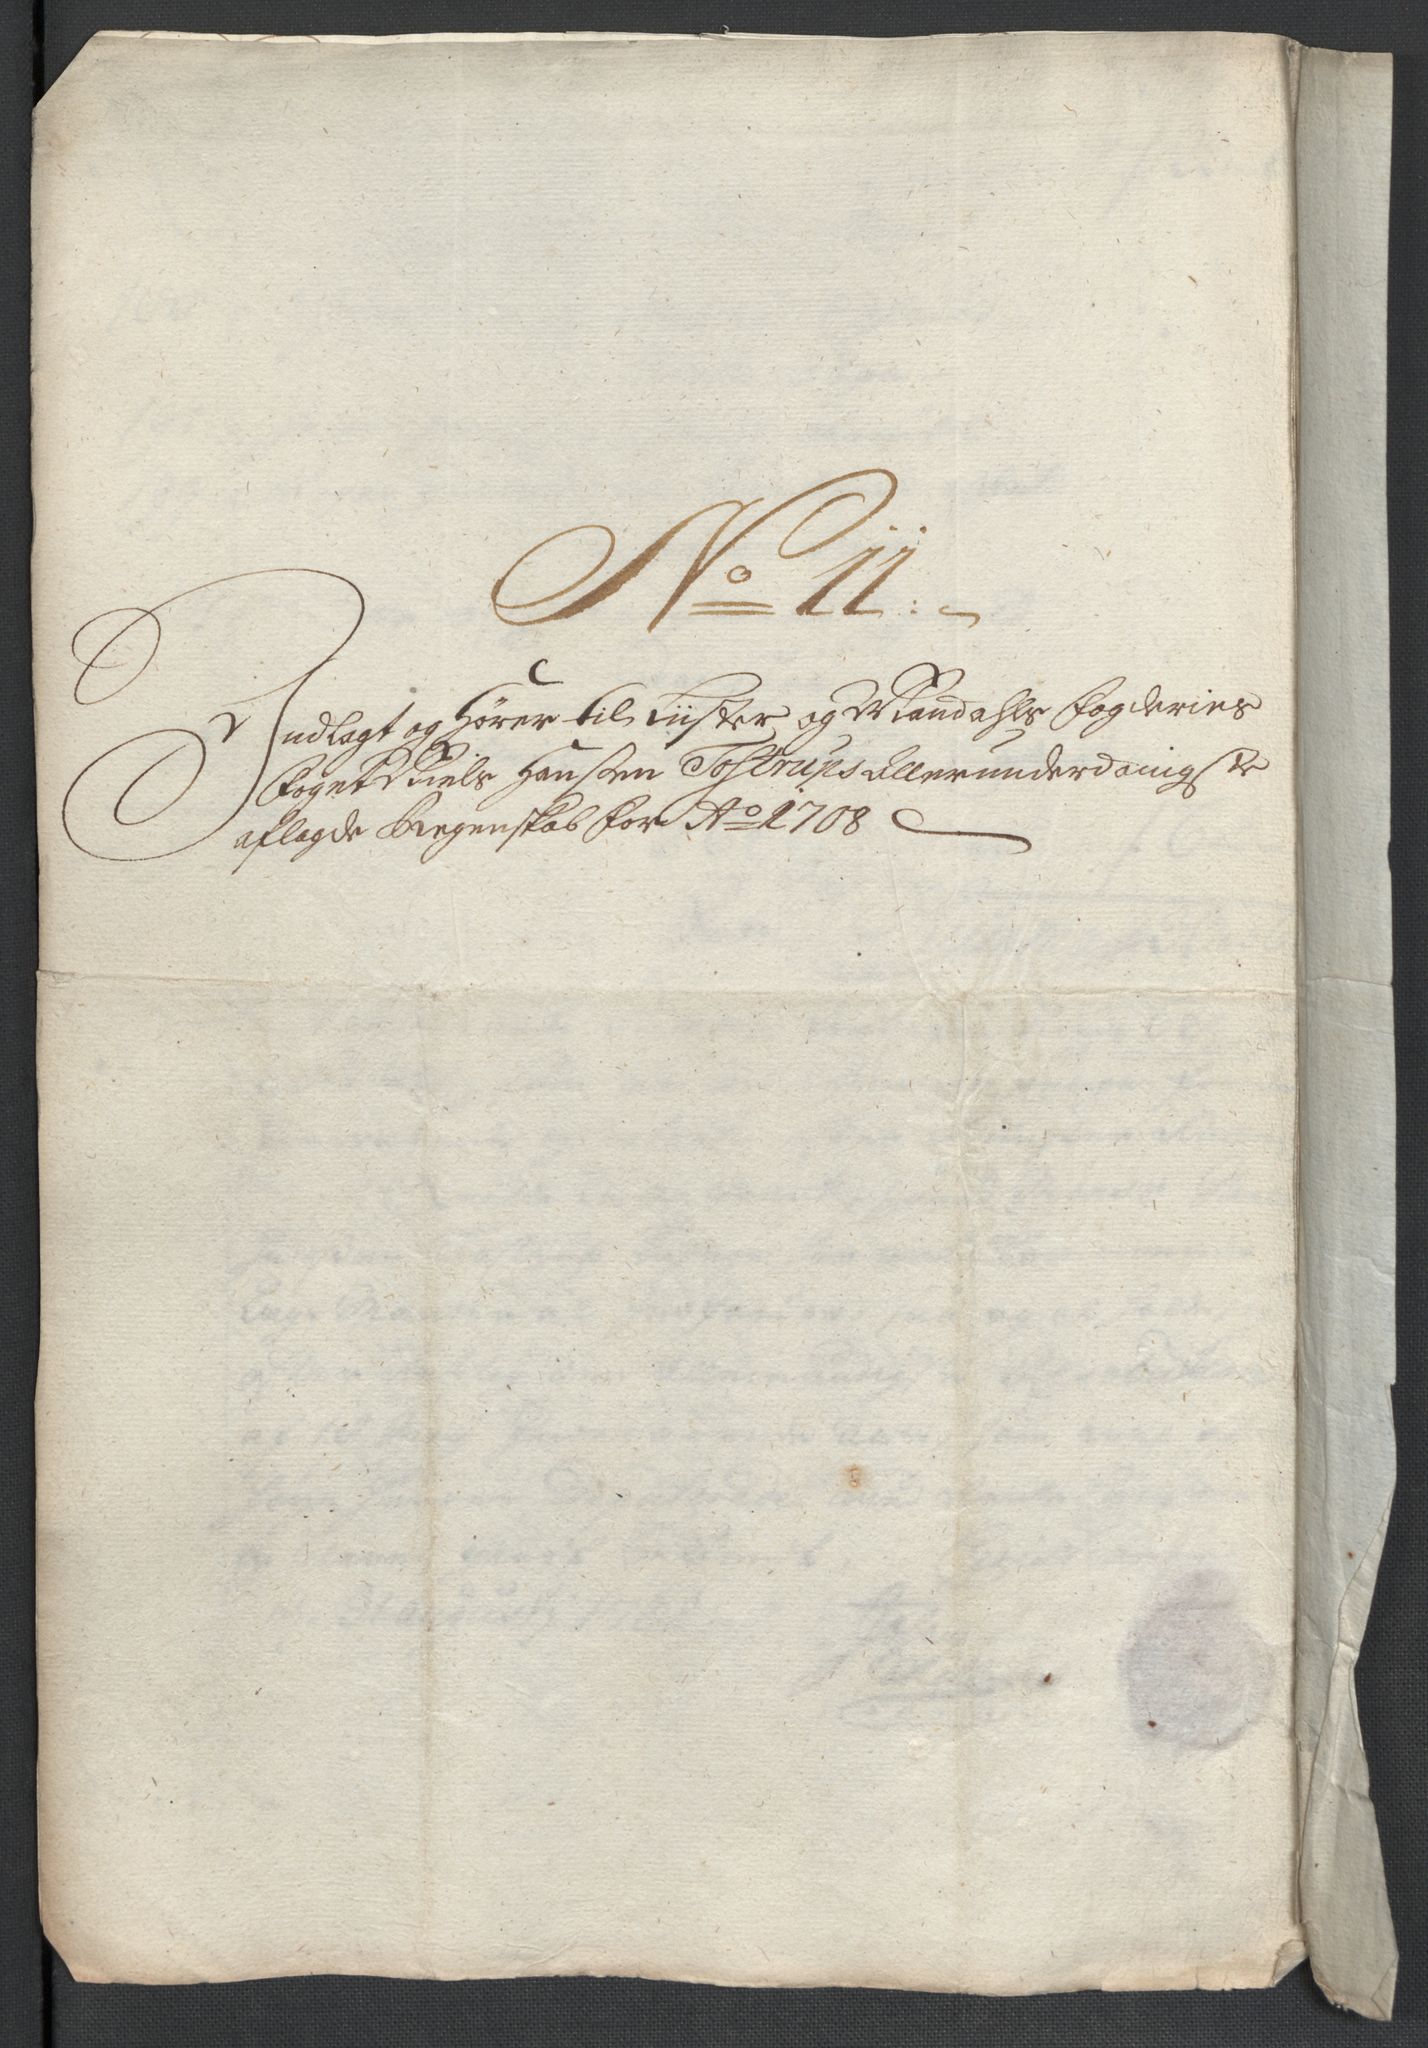 No 11.
Indlagt og Hører til Liister og Mandahls fogderies
foget Niels Hanßen Tostrups allerunderdanigste
aflagde Regenskab for Ao 1708